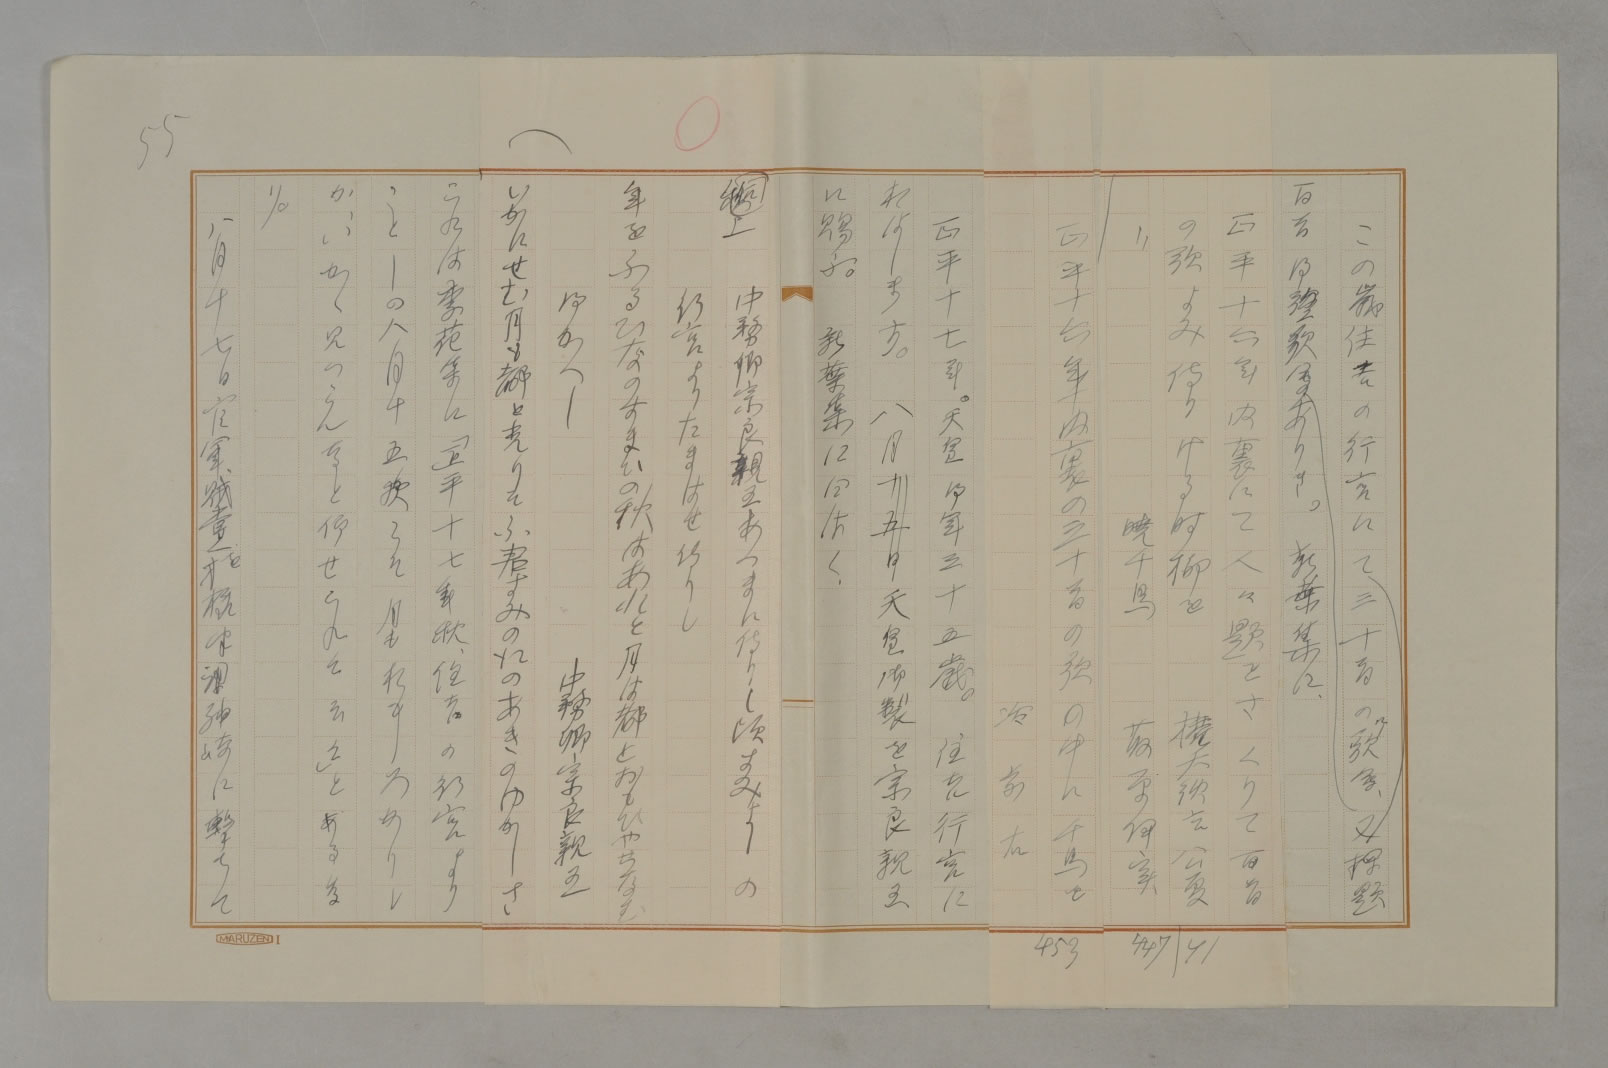 この歳住吉の行宮にて三十首の御歌会、又探題
百首御歌会ありき。 新葉集に、
正平十六年内裏にて人々題をさくりて百首
の歌よみ侍りける時柳を 権大納言公夏
〃 暁千鳥 藤原伊実
正平十六年内裏の三十首の歌の中に千鳥を
正平十七年。天皇御年三十五歳。 住吉行宮に
おはします。 八月十五日天皇御製を宗良親王
に賜ふ。 新葉集に曰はく、
上 中務卿宗良親王あつまに侍りし頃すみよしの
行宮よりたまはせ侍りし
年をふるひなのすまひの秋はあれと月は都とおもひやらなむ
御かへし 中務卿宗良親王
いかにせむ月も都と光りそふ君すみのえのあきのゆかしさ
これは李花集に「正平十七年秋、住吉の行宮より
ことしの八月十五夜こそ月もおもしろかりし
かいかゝ見つらんなと仰せられて云々」とある
八月十七日官軍、賊を摂津湊神崎に撃ちて
55
453
447/41
MARUZEN I